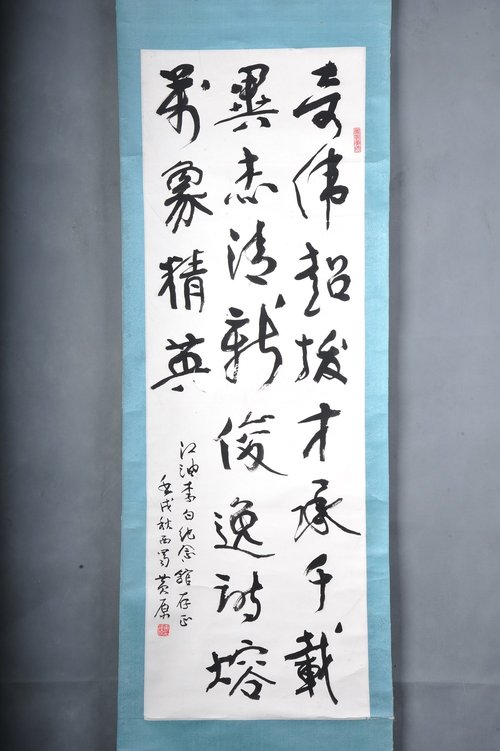 奇伟超拔才承千載
異杰清新俊逸诗熔
萬象精英
江油李白纪念館存正
壬戌秋西蜀黄原